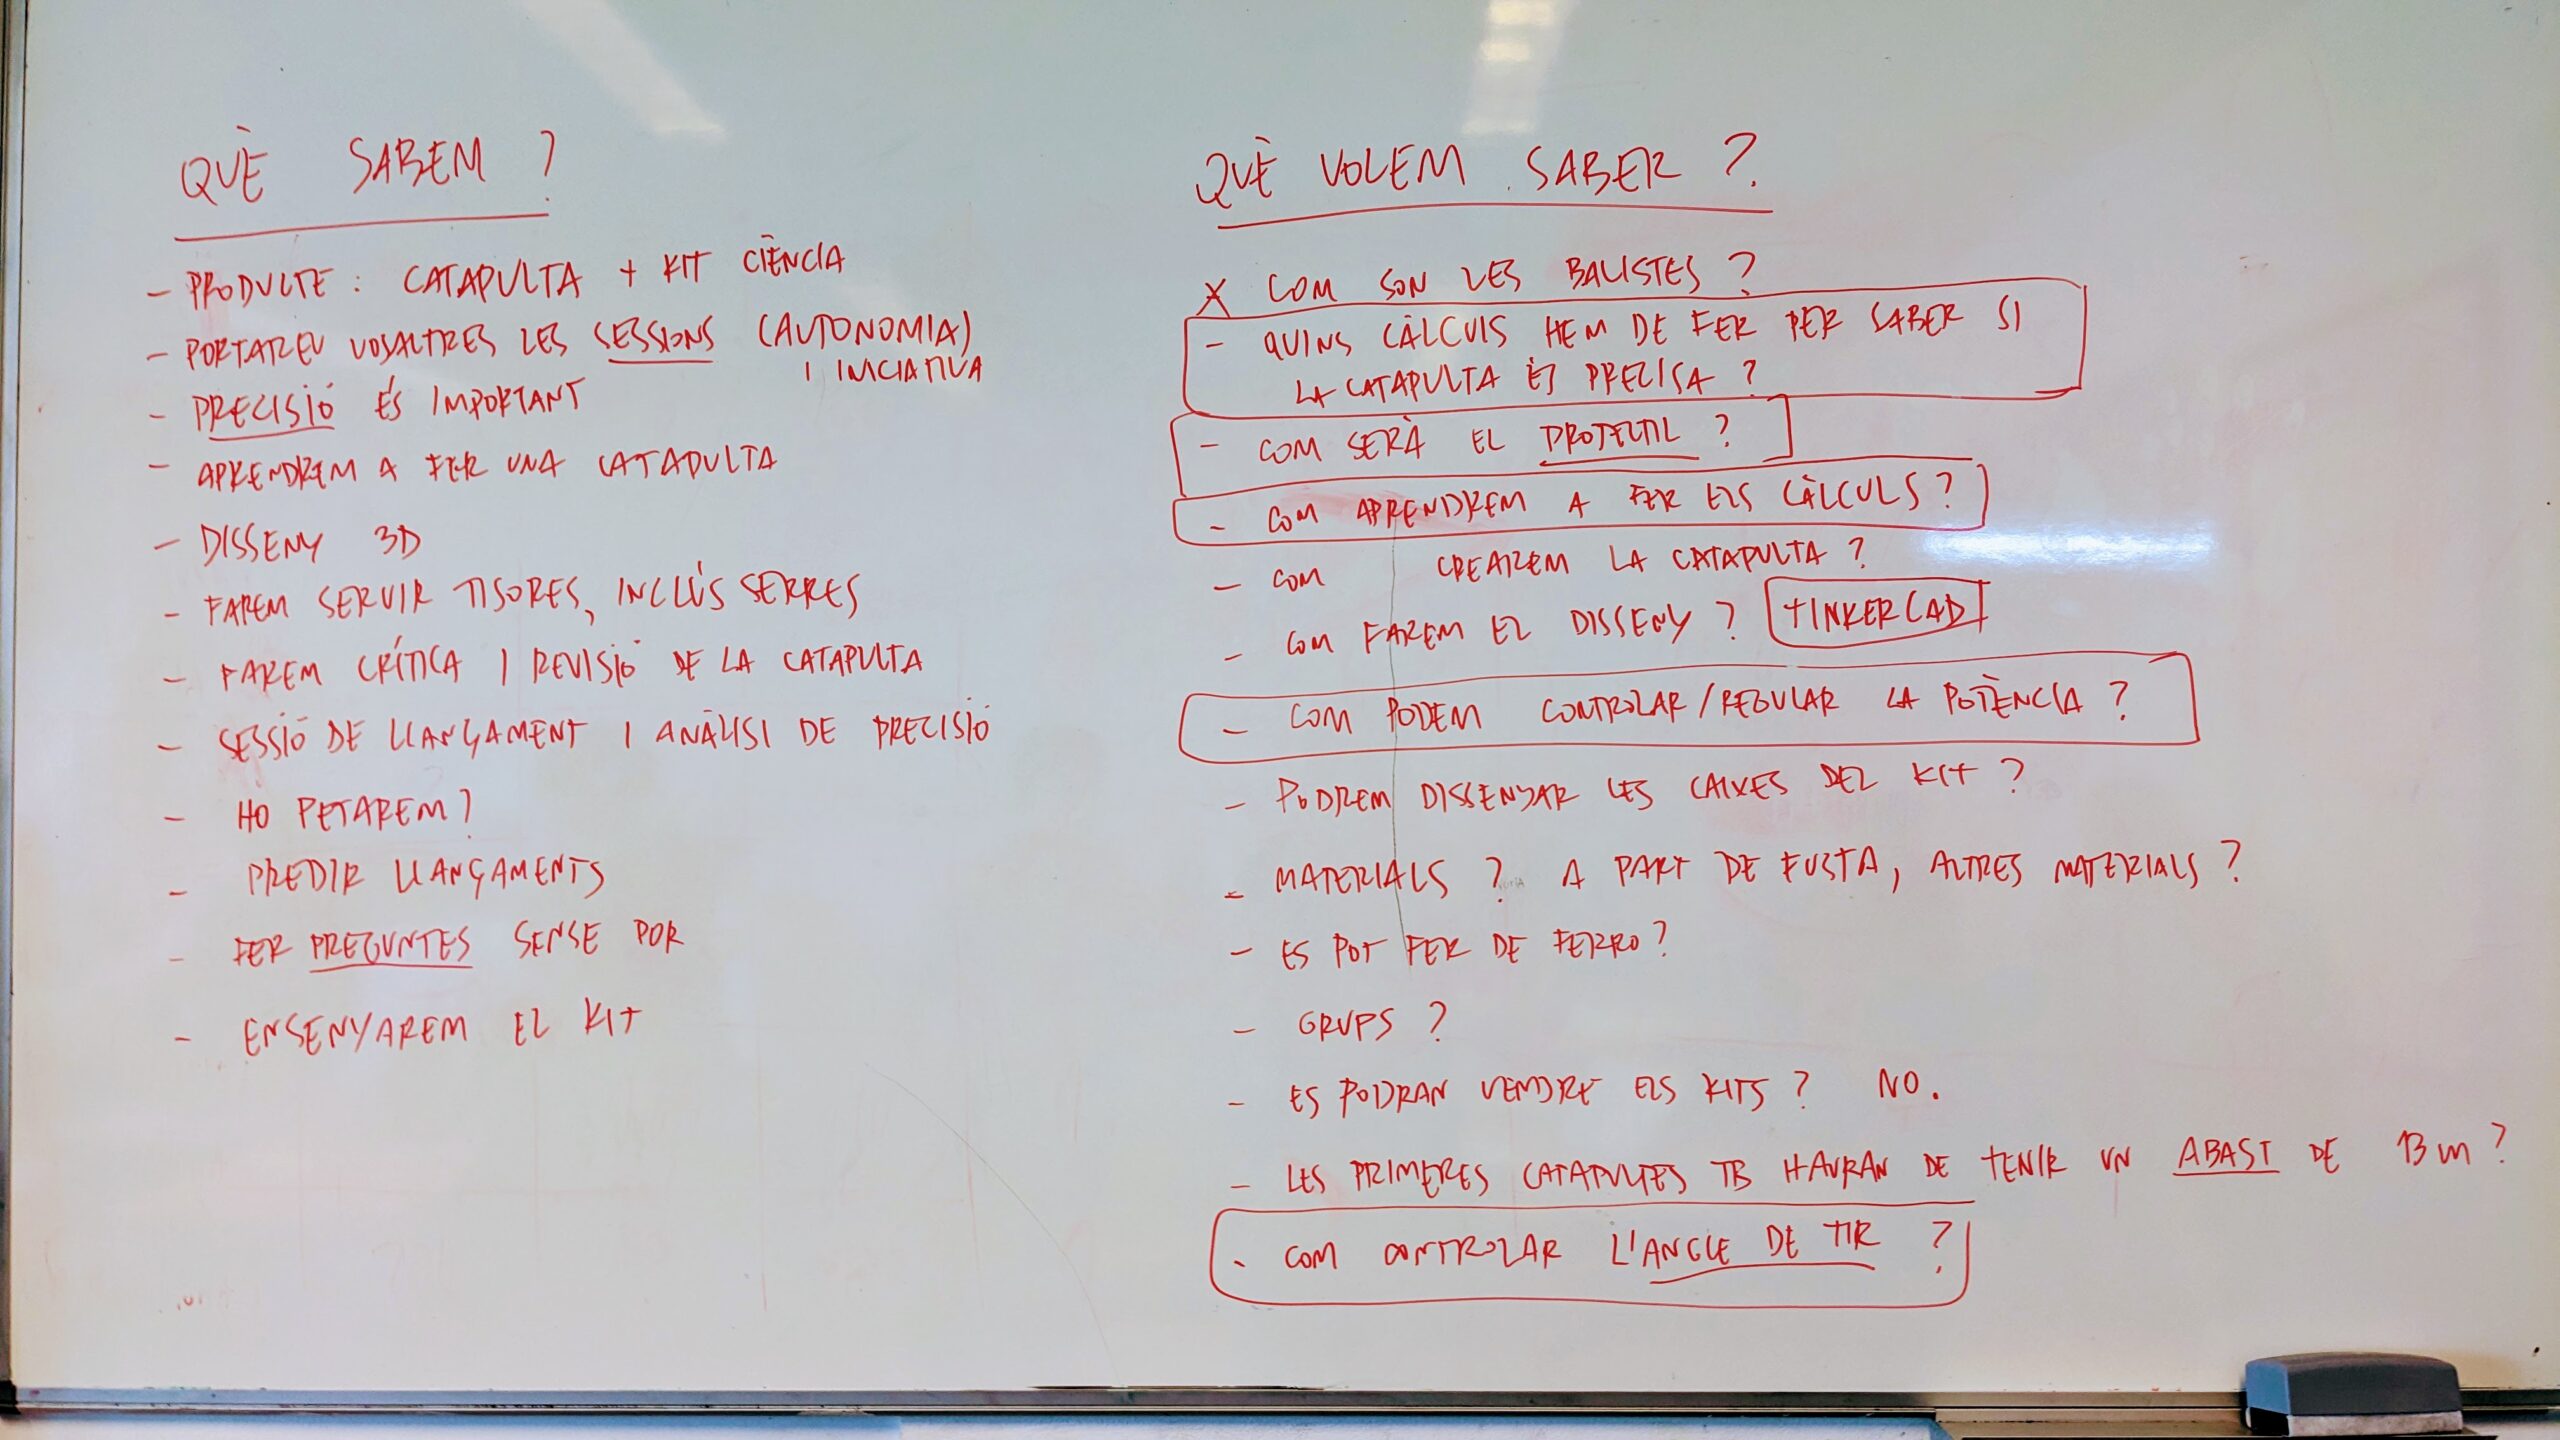 QUÈ SABEM ?
- PRODUCTE : CATAPULTA + KIT CIÈNCIA
- PORTAREU VOSALTRES LES SESSIONS (AUTONOMIA)
I INICIATIVA
- PRECISIÓ ÉS IMPORTANT
- APRENDREM A FER UNA CATAPULTA
- DISSENY 3D
- FAREM SERVIR TISORES, INCLÚS SERRES
- FAREM CRÍTICA I REVISIÓ DE LA CATAPULTA
- SESSIÓ DE LLANÇAMENT I ANÀLISI DE PRECISIÓ
- HO PETAREM ?
- PREDIR LLANÇAMENTS
- FER PREGUNTES SENSE POR
- ENSENYAREM EL KIT
QUÈ VOLEM SABER ?
X COM SON LES BALISTES ?
- QUINS CÀLCULS HEM DE FER PER SABER SI
LA CATAPULTA ÉS PRECISA ?
- COM SERÀ EL PROJECTIL ?
- COM APRENDREM A FER ELS CÀLCULS ?
- COM CREAREM LA CATAPULTA ?
- COM FAREM EL DISSENY ? TINKERCAD
- COM PODEM CONTROLAR / REGULAR LA POTÈNCIA ?
- PODREM DISSENYAR LES CAIXES DEL KIT ?
- MATERIALS ? A PART DE FUSTA, ALTRES MATERIALS ?
- ES POT FER DE FERRO ?
- GRUPS ?
- ES PODRAN VENDRE ELS KITS ? NO.
- LES PRIMERES CATAPULTES TB HAURAN DE TENIR UN ABAST DE 13 m ?
- COM CONTROLAR L'ANGLE DE TIR ?